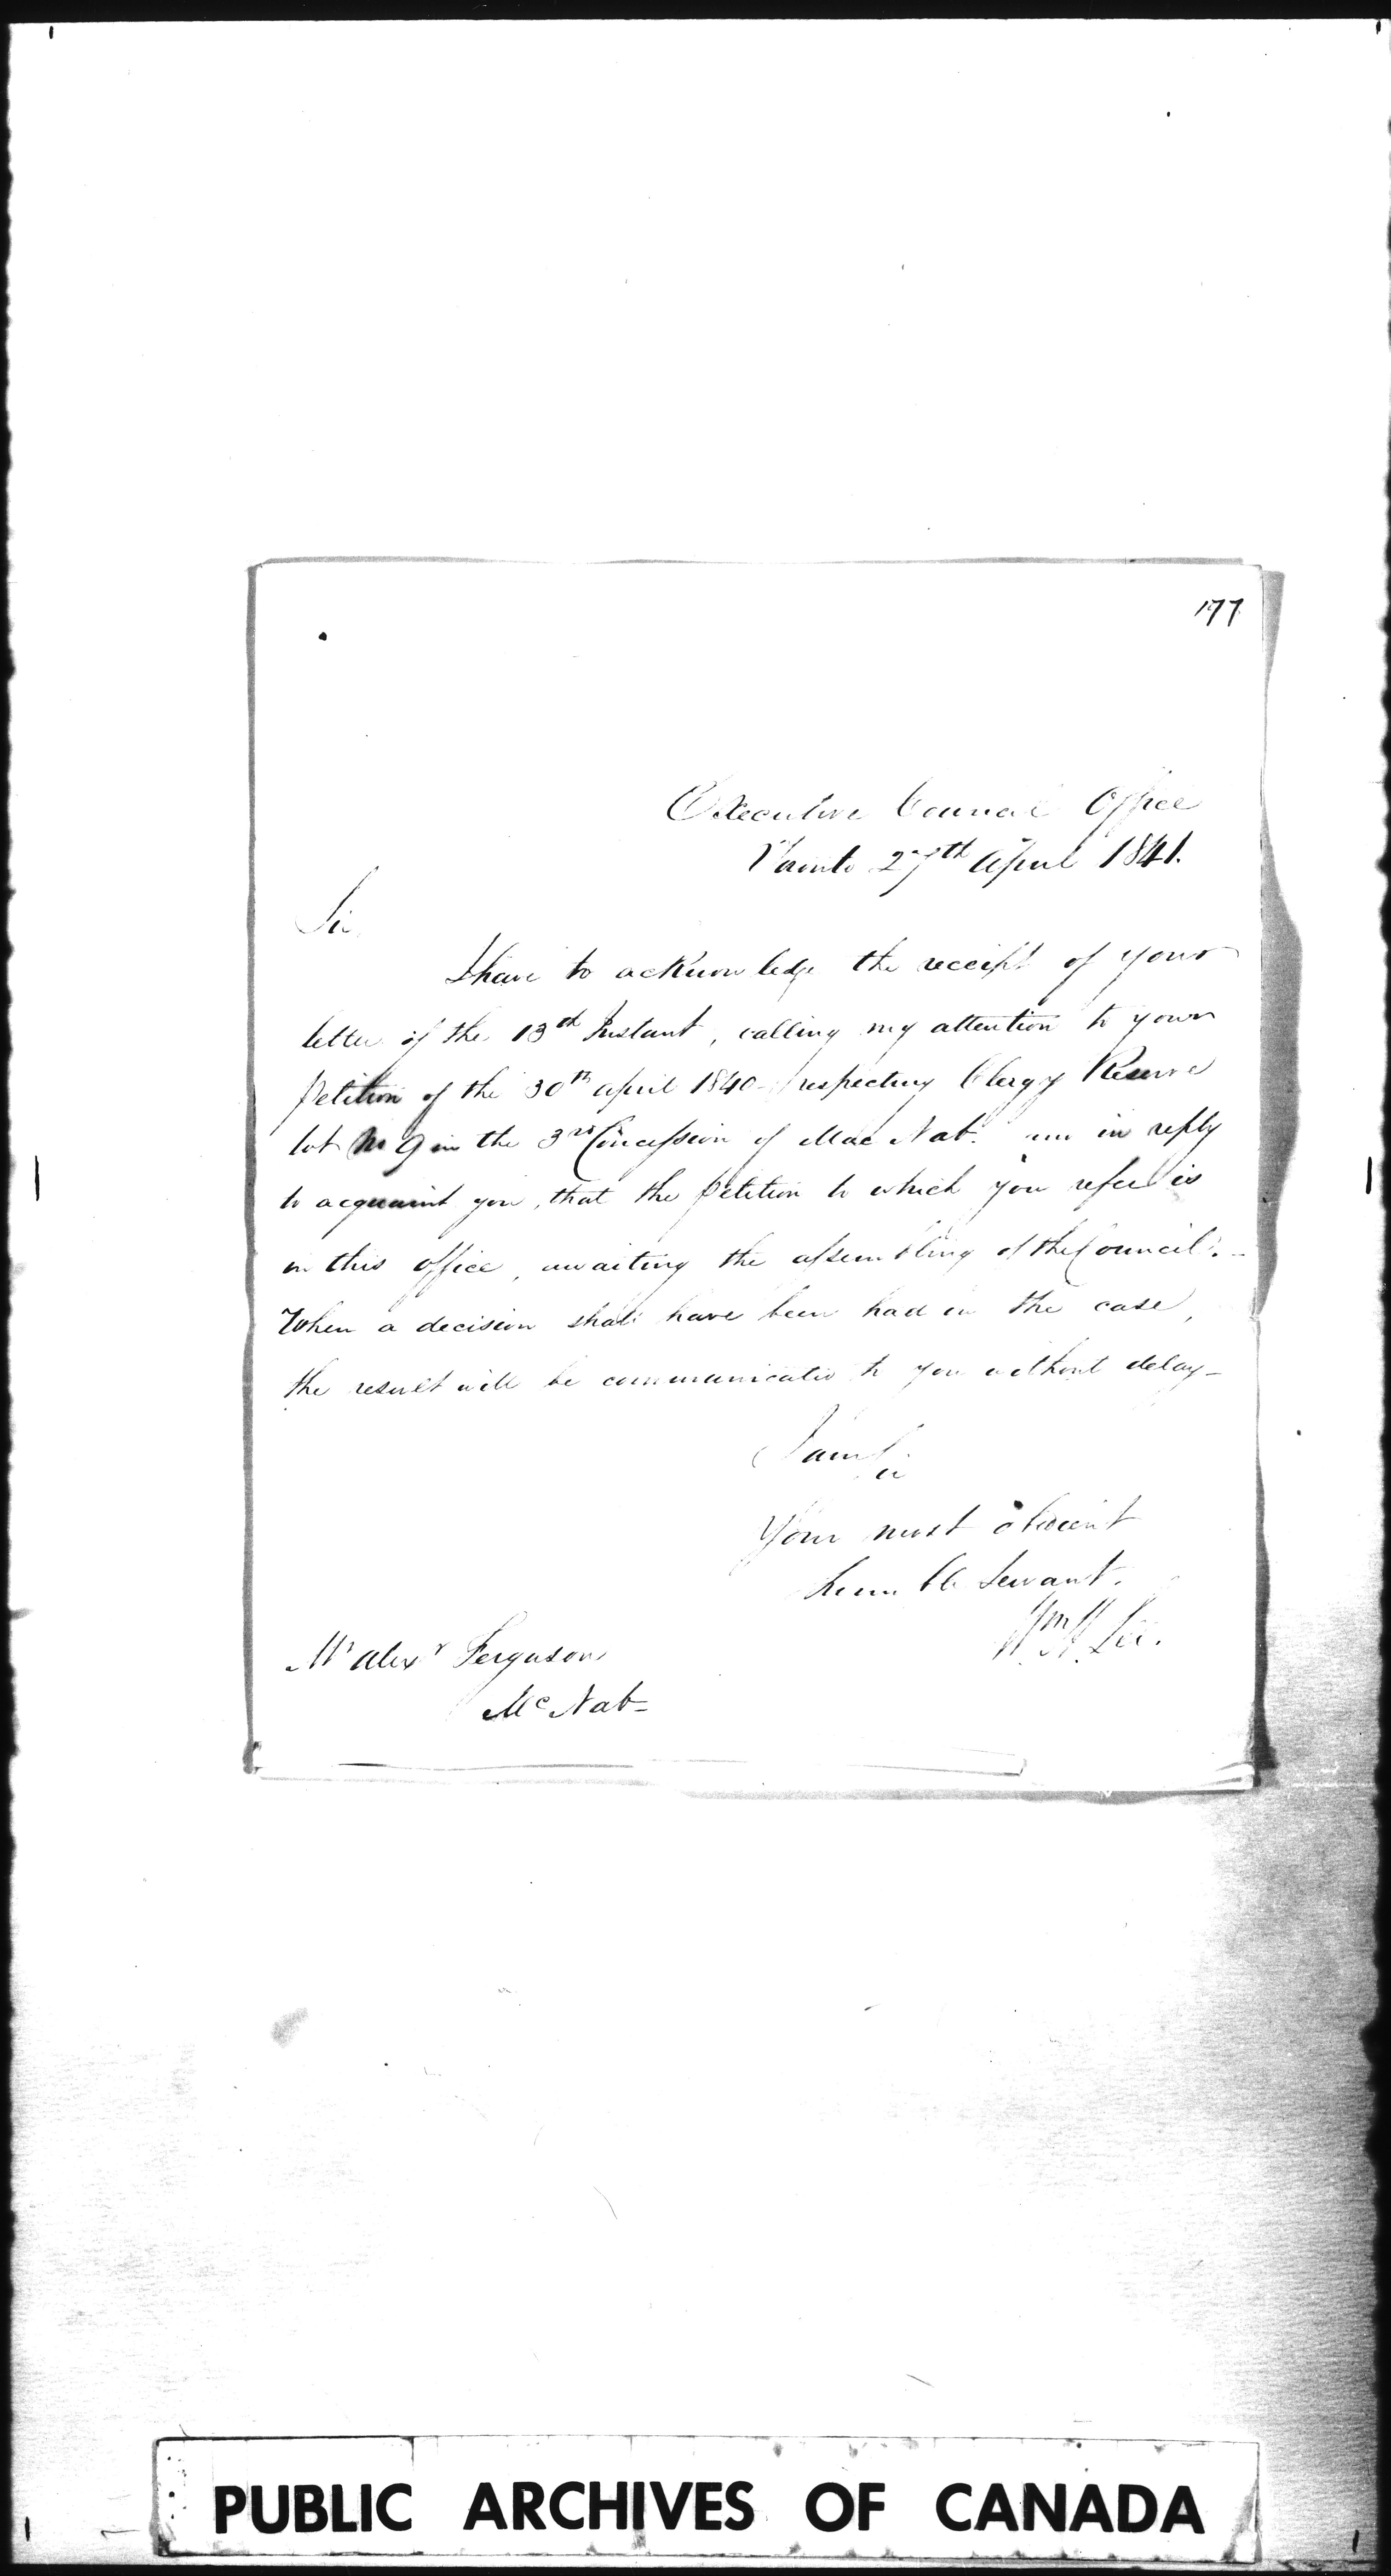 177
Executive Council Office
Toronto 27th April 1841.
Sir,
I have to acknowledge the receipt of your
letter of the 13th Instant, calling my attention to your
Petition of the 30th April 1840 - respecting Clergy Reserve
lot No 9 in the 3rd Concession of Mac Nab. in reply
to acquaint you, that the Petition to which you refer is
in this office, awaiting the assembling of the Council. -
When a decision shall have been had in the case,
the result will be communicated to you without delay -
I am Sir
Your most obedient
humble Servant.
Wm H Lee.
Mr Alexr Ferguson
McNab -
PUBLIC ARCHIVES OF CANADA